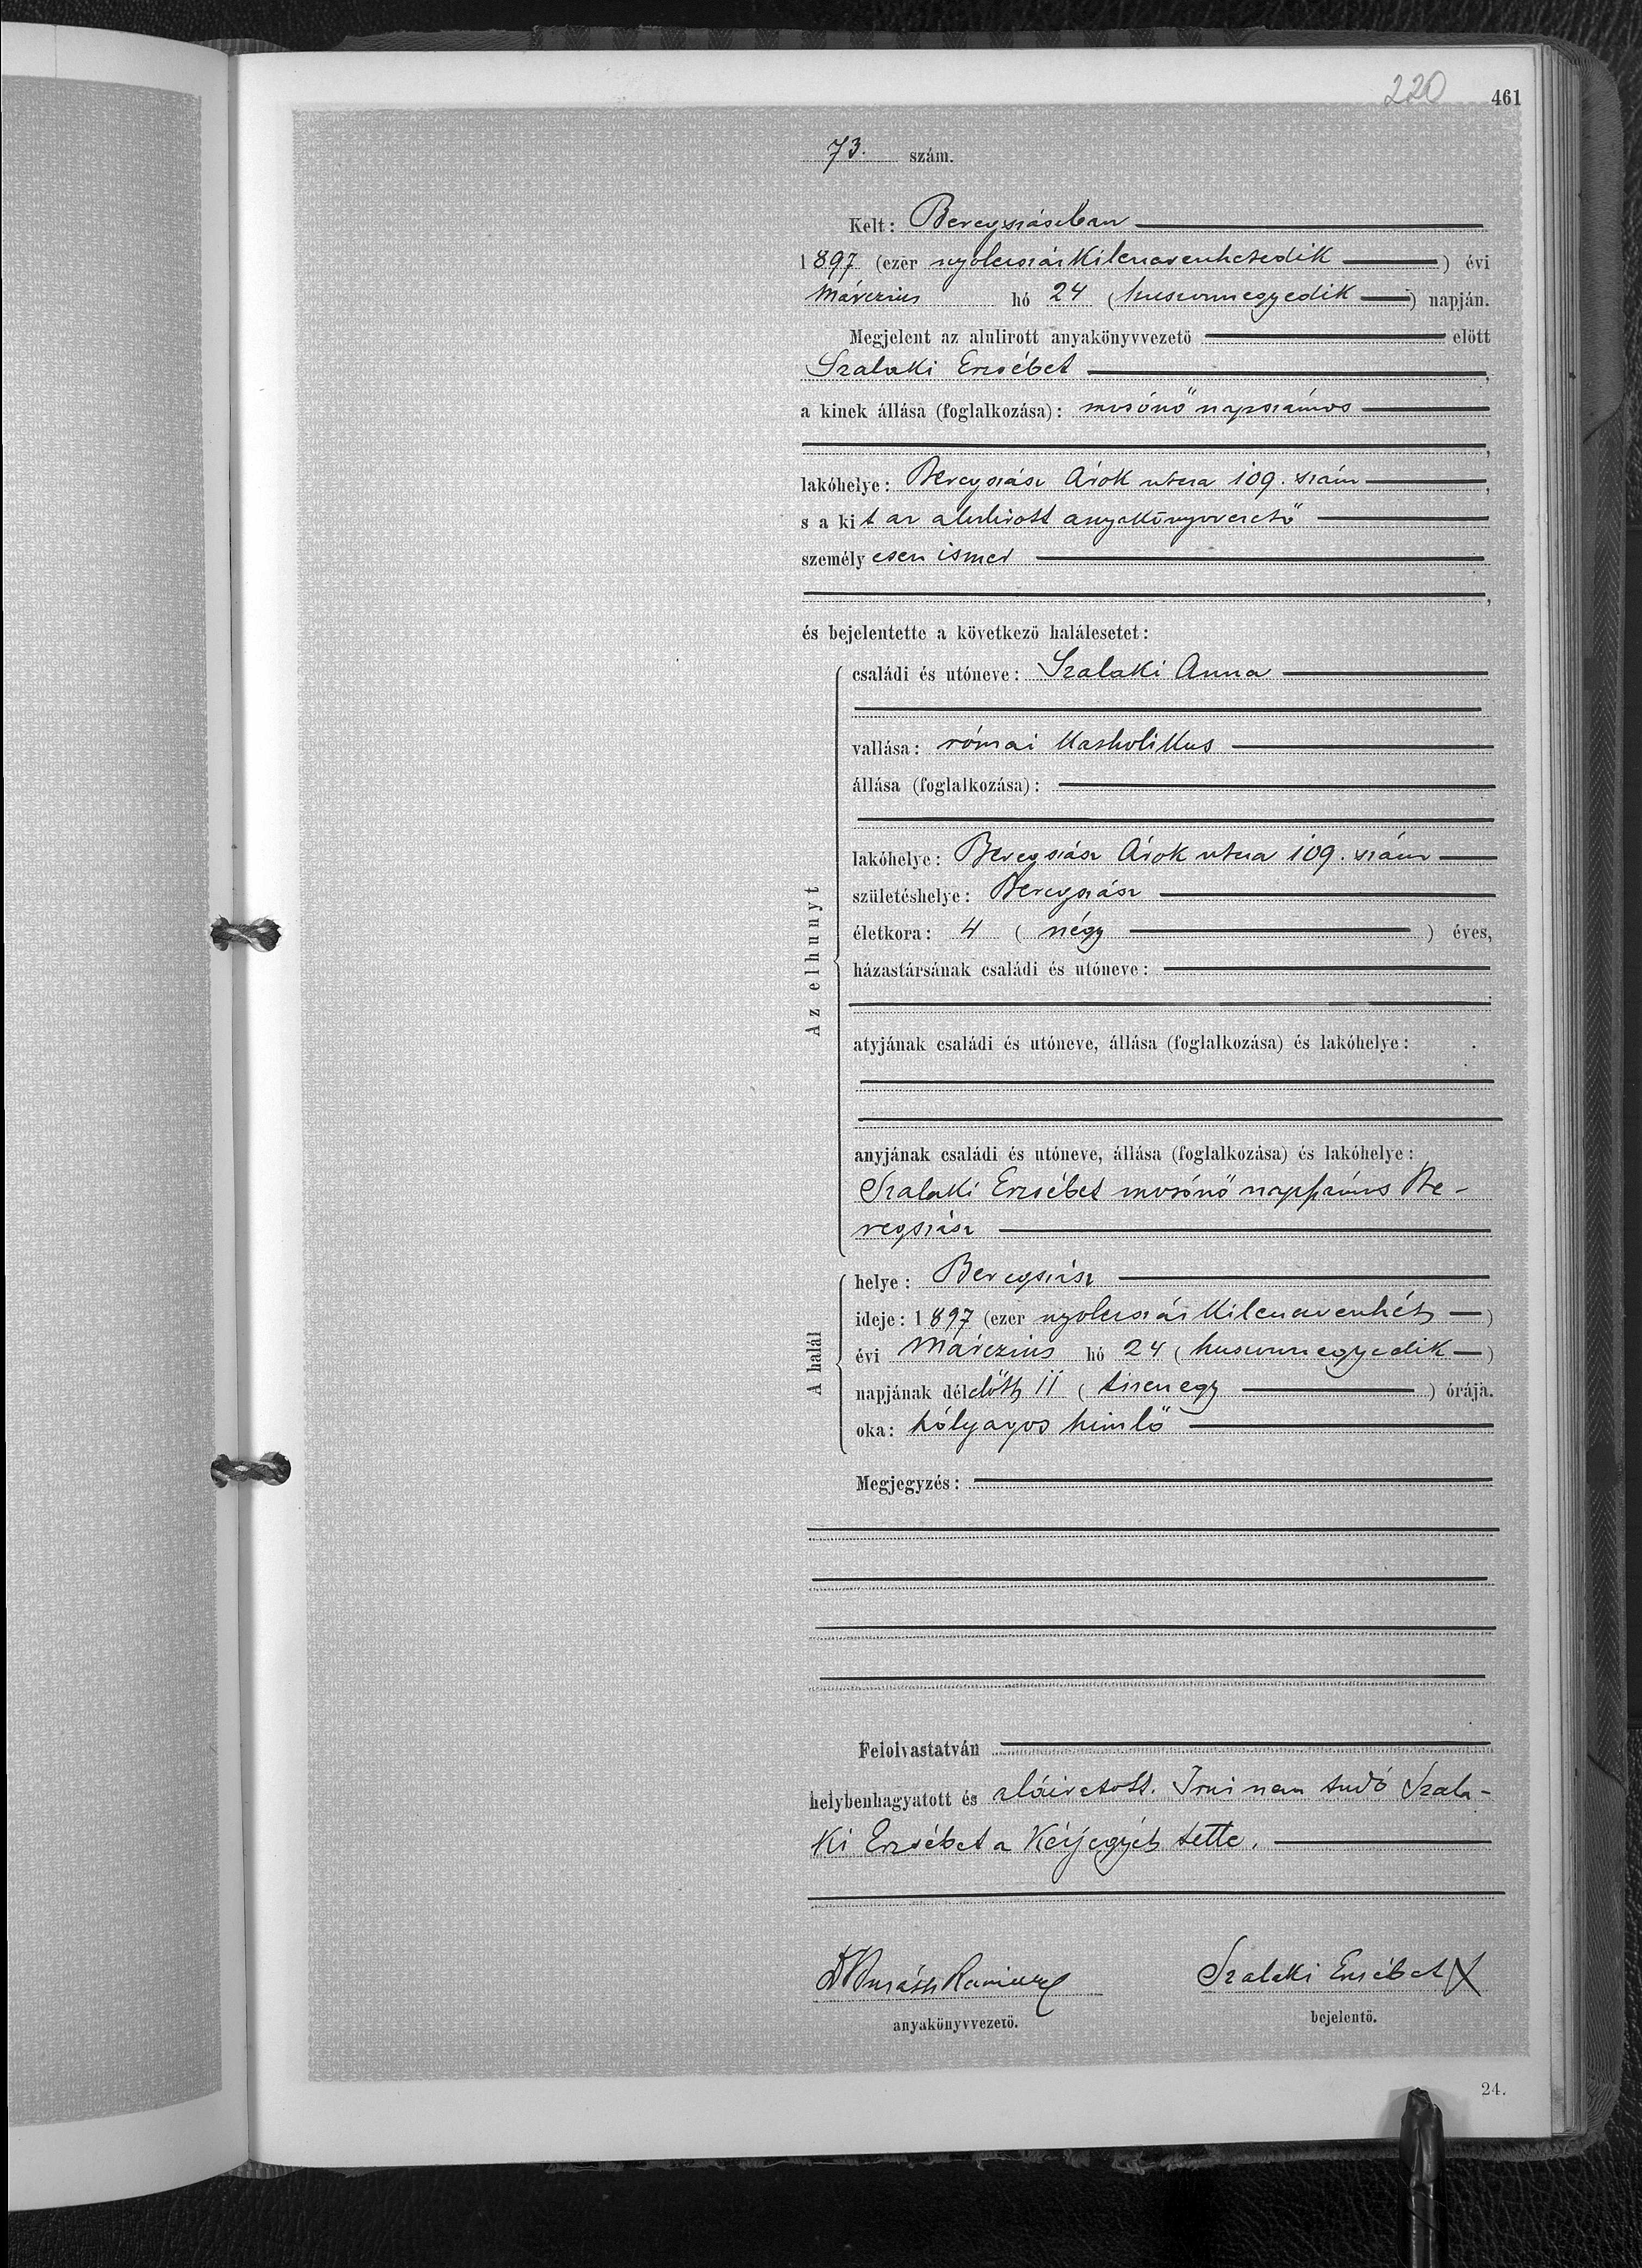 220 461
73. szám.
Kelt: Beregszászban
1897 (ezer nyolczszázkilenczvenhetedik) évi
Márczius hó 24 (huszonnegyedik) napján.
Megjelent az alulirott anyakönyvvezető előtt
Szalaki Erzsébet,
a kinek állása (foglalkozása): mosónő napszámos
,
lakóhelye: Beregszász Árok utcza 109. szám,
s a kit az alulirott anyakönyvvezető
személyesen ismer
,
és bejelentette a következő halálesetet:
Az elhunyt
családi és utóneve: Szalaki Anna
vallása: római katholikus
állása (foglalkozása):
lakóhelye: Beregszász Árok utcza 109. szám
születéshelye: Beregszász
életkora: 4 (négy) éves,
házastársának családi és utóneve:
atyjának családi és utóneve, állása (foglalkozása) és lakóhelye:
anyjának családi és utóneve, állása (foglalkozása) és lakóhelye:
Szalaki Erzsébet mosónő napszámos Be-
regszász
A halál
helye: Beregszász
ideje: 1897 (ezer nyolczszázkilenczvenhét)
évi Márczius hó 24 (huszonnegyedik)
napjának délelőtt 11 (tizenegy) órája.
oka: hólyagos himlő
Megjegyzés:
Felolvastatván
helybenhagyatott és aláiratott. Irni nem tudó Szala-
ki Erzsébet a kézjegyét tette.
Szalaki Erzsébet X
anyakönyvvezető. bejelentő.
24.